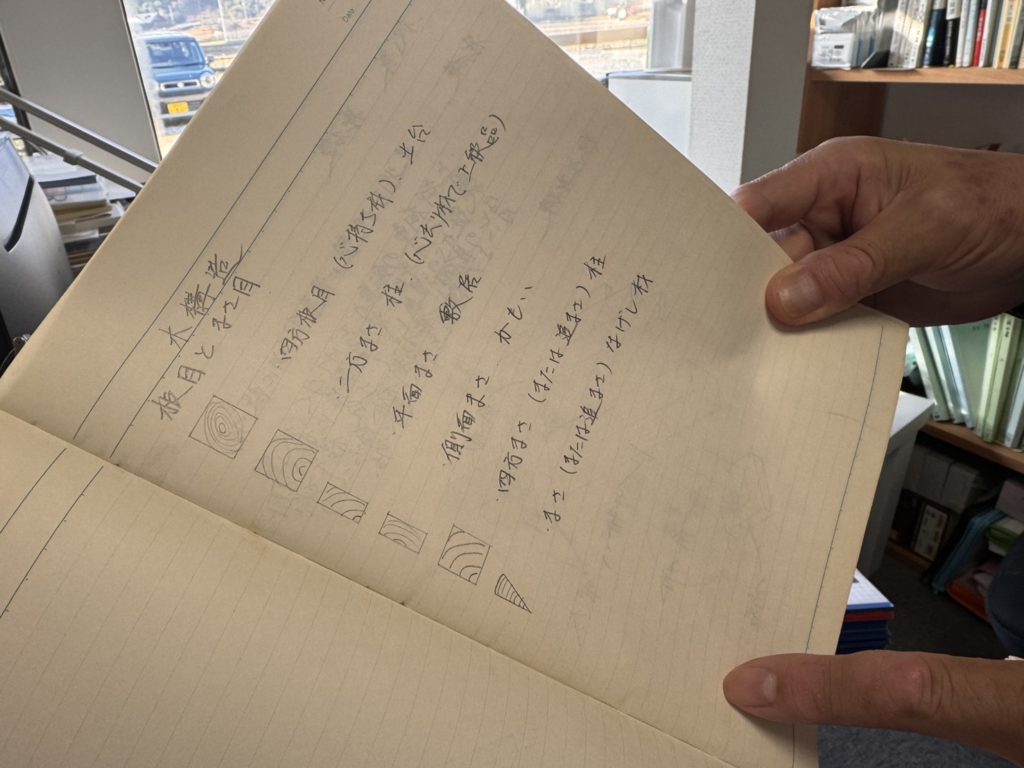 木構造
板目と まさ目
・四方板目 (心持ち材) 土台
・二方まさ 柱 (心去り材で上級品)
・平面まさ 敷居
・側面まさ かもい
・四方まさ (または追まさ) 柱
・まさ (または追まさ) なげし材